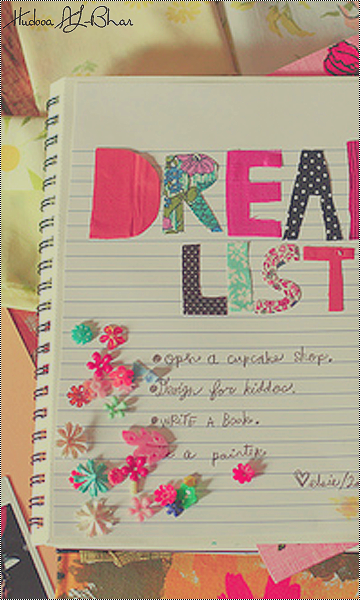 Hudooa AL-Bhar
DREAM
LIST
• oph a cupcake shop.
• Design for kiddos.
• WRITE A BOOK.
a painter
♡ elsie/20